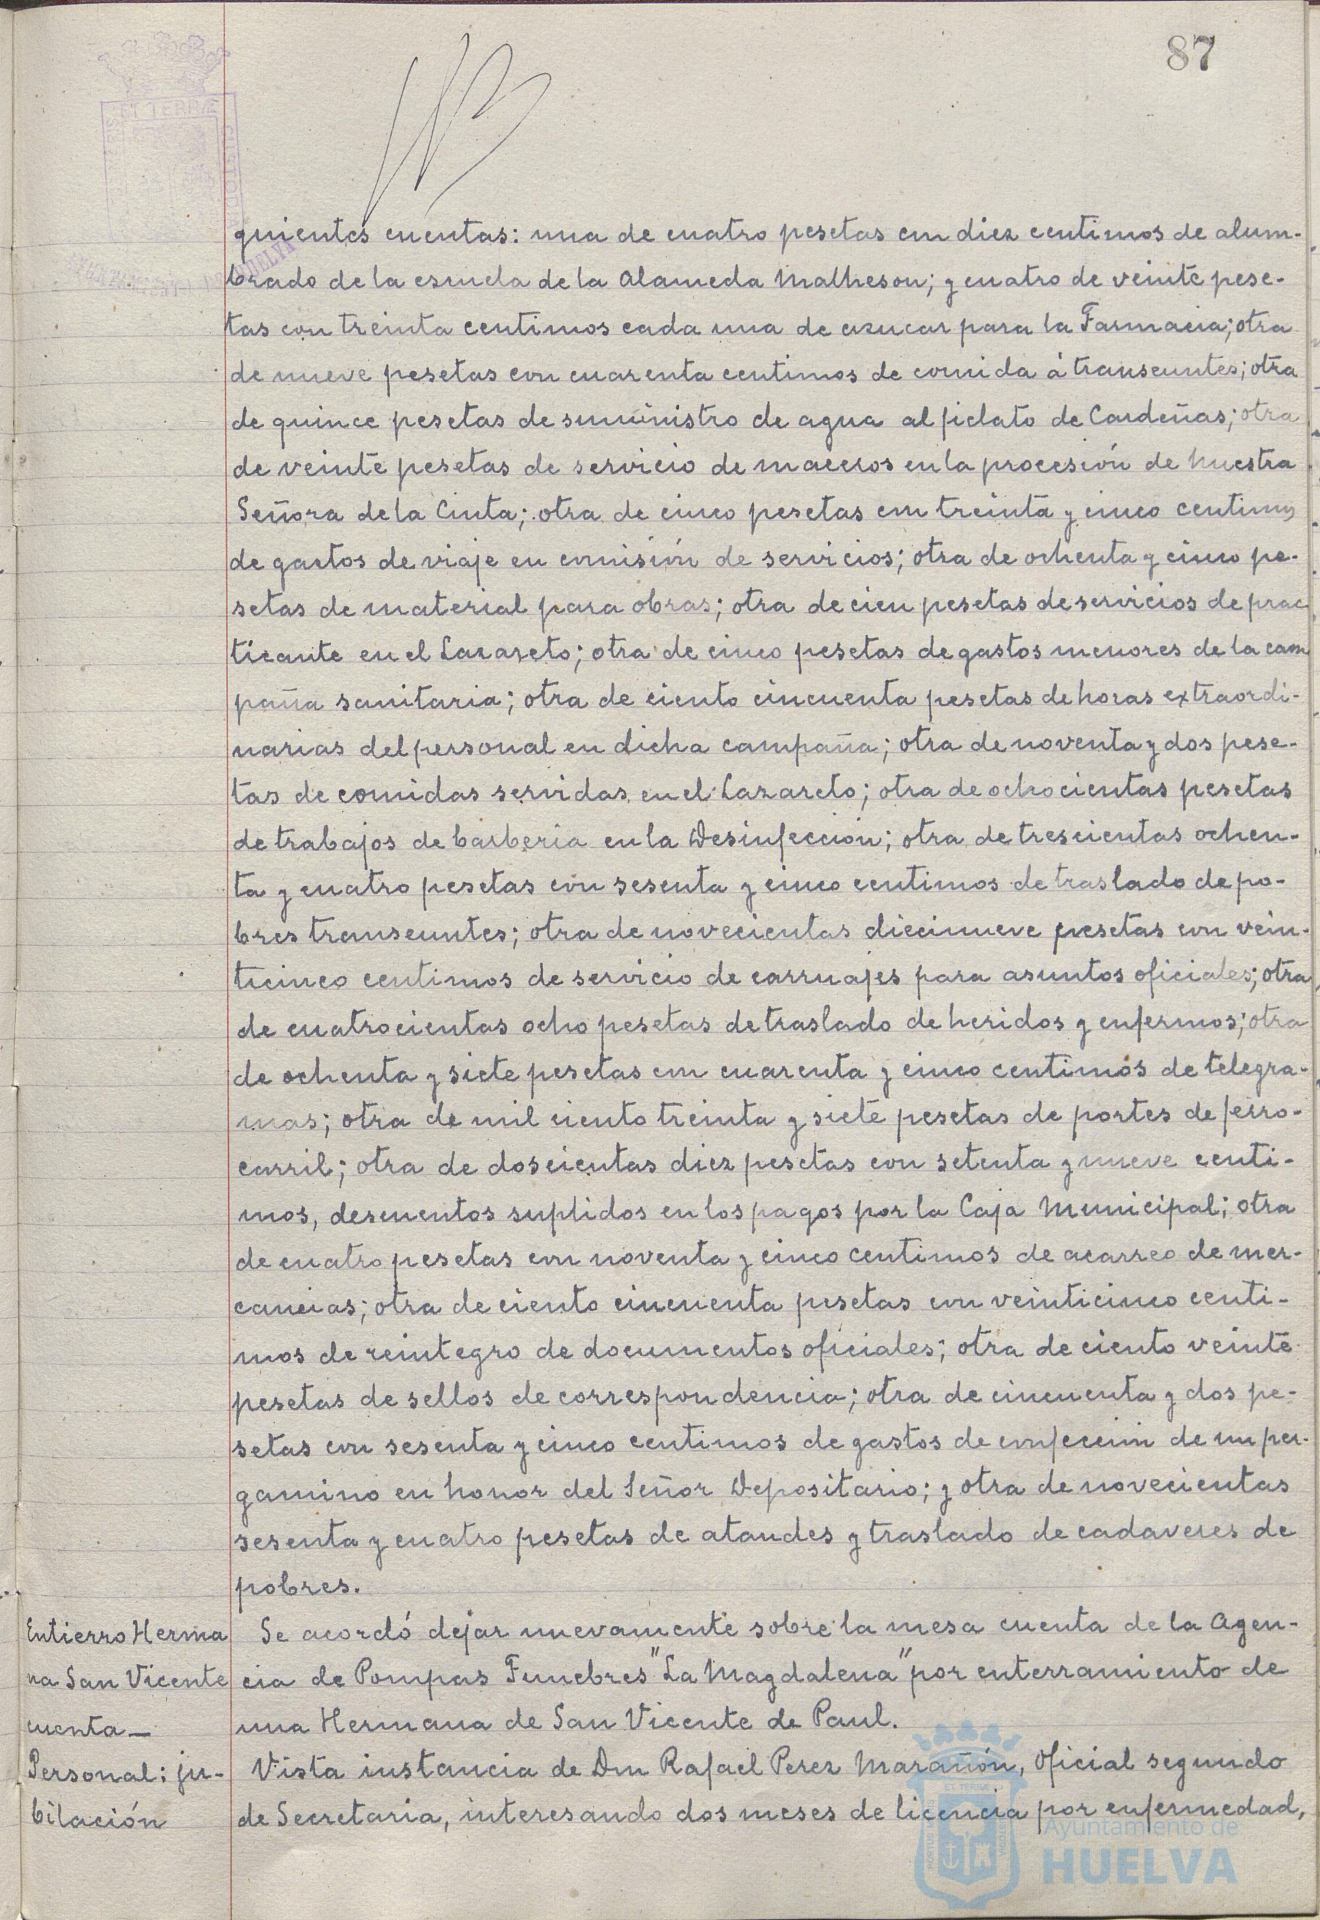 87
guientes cuentas: una de cuatro pesetas con diez centimos de alum-
brado de la escuela de la Alameda Matheson; y cuatro de veinte pese-
tas con treinta centimos cada una de azucar para la Farmacia; otra
de nueve pesetas con cuarenta centimos de comida á transeuntes; otra
de quince pesetas de suministro de agua al fielato de Cardeñas; otra
de veinte pesetas de servicio de maceros en la procesión de Nuestra
Señora de la Cinta; otra de cinco pesetas con treinta y cinco centimos
de gastos de viaje en comisión de servicios; otra de ochenta y cinco pe-
setas de material para obras; otra de cien pesetas de servicios de prac
ticante en el Lazareto; otra de cinco pesetas de gastos menores de la cam
paña sanitaria; otra de ciento cincuenta pesetas de horas extraordi-
narias del personal en dicha campaña; otra de noventa y dos pese-
tas de comidas servidas en el Lazareto; otra de ochocientas pesetas
de trabajos de barberia en la Desinfección; otra de trescientas ochen-
ta y cuatro pesetas con sesenta y cinco centimos de traslado de po-
bres transeuntes; otra de novecientas diecinueve pesetas con vein-
ticinco centimos de servicio de carruajes para asuntos oficiales; otra
de cuatrocientas ocho pesetas de traslado de heridos y enfermos; otra
de ochenta y siete pesetas con cuarenta y cinco centimos de telegra-
mas; otra de mil ciento treinta y siete pesetas de portes de ferro-
carril; otra de doscientas diez pesetas con setenta y nueve centi-
mos, descuentos suplidos en los pagos por la Caja Municipal; otra
de cuatro pesetas con noventa y cinco centimos de acarreo de mer-
cancias; otra de ciento cincuenta pesetas con veinticinco centi-
mos de reintegro de documentos oficiales; otra de ciento veinte
pesetas de sellos de correspondencia; otra de cincuenta y dos pe-
setas con sesenta y cinco centimos de gastos de confección de un per-
gamino en honor del Señor Depositario; y otra de novecientas
sesenta y cuatro pesetas de ataudes y traslado de cadaveres de
pobres.
Entierro Herma
na San Vicente
cuenta_
Se acordó dejar nuevamente sobre la mesa cuenta de la Agen-
cia de Pompas Funebres "La Magdalena" por enterramiento de
una Hermana de San Vicente de Paul.
Personal: ju-
bilación
Vista instancia de Don Rafael Perez Marañón, oficial segundo
de Secretaria, interesando dos meses de licencia por enfermedad,
Ayuntamiento de
HUELVA